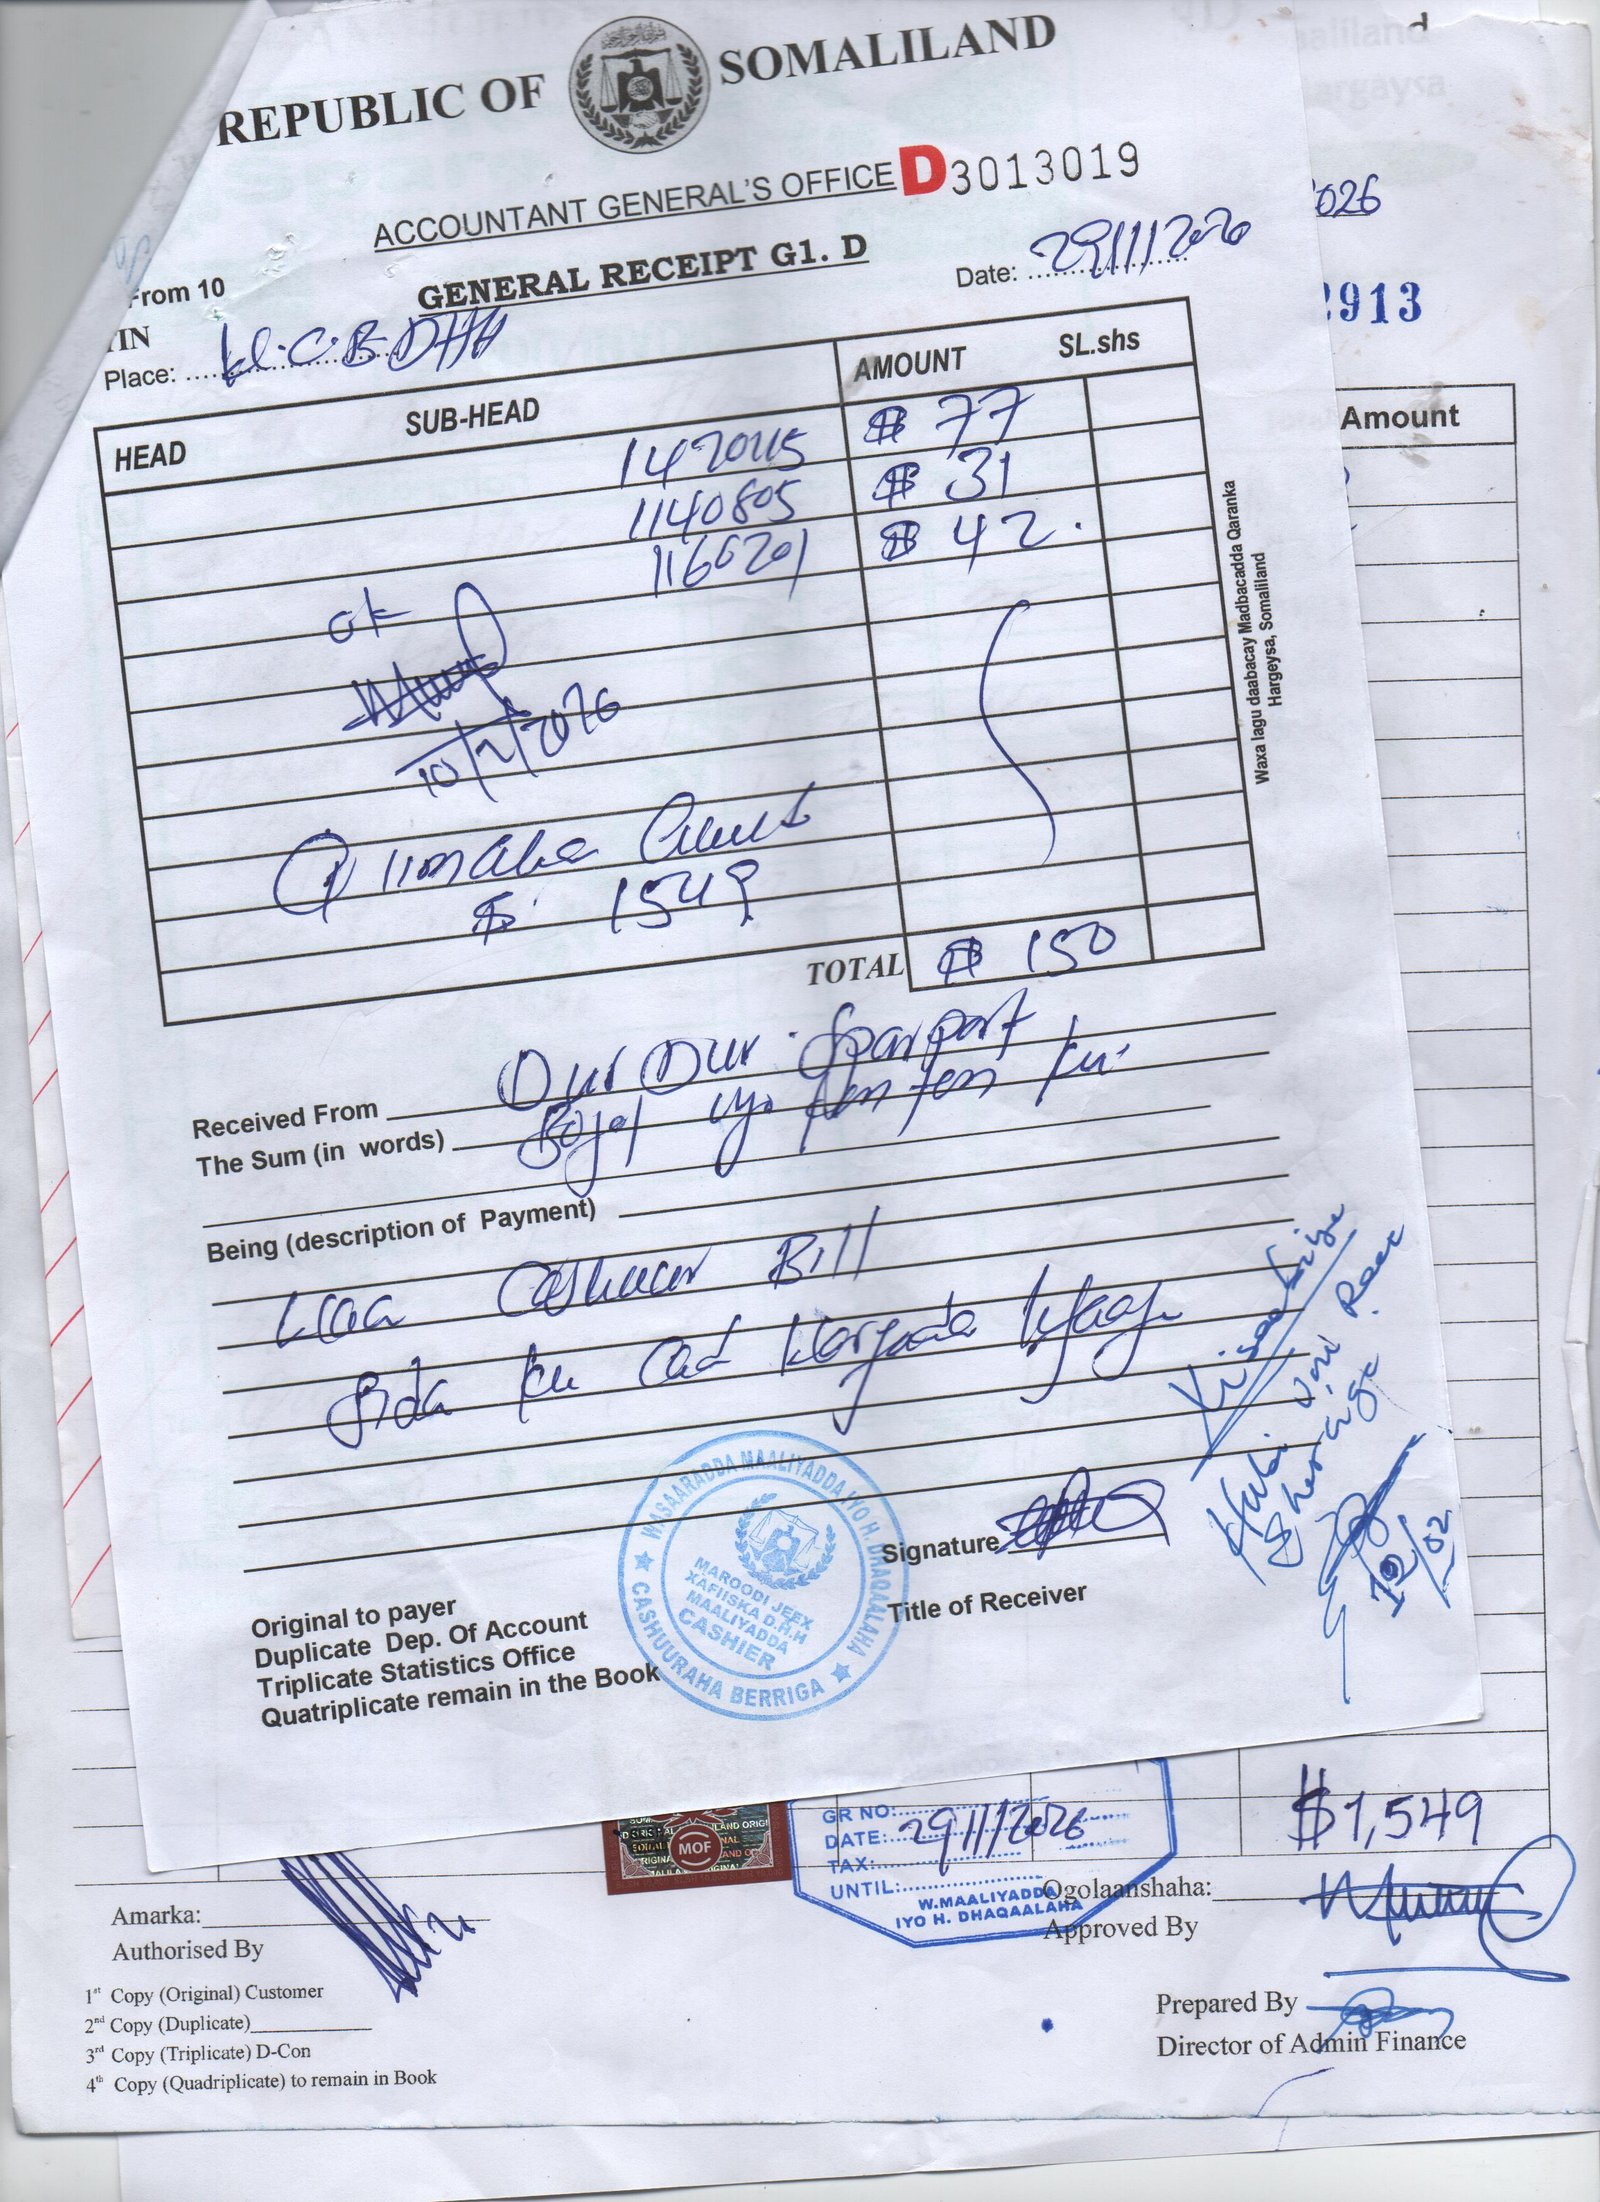 REPUBLIC OF SOMALILAND
ACCOUNTANT GENERAL'S OFFICE D3013019
GENERAL RECEIPT G1. D
From 10
TIN
Date: 29/1/2026
Place:
HEAD SUB-HEAD AMOUNT SL.shs
1420415 $ 77
1140805 $ 31
1166201 $ 42
ok
10/2/2026
$ 1549
TOTAL $ 150
Received From
The Sum (in words) iyo konton
Being (description of Payment)
Cashuur Bill
Sida ku cad
Signature
Title of Receiver
Original to payer
Duplicate Dep. Of Account
Triplicate Statistics Office
Quatriplicate remain in the Book
WASAARADDA MAALIYADDA IYO H. DHAQAALAHA
MAROODI JEEX
XAFIISKA D.H.H
MAALIYADDA
CASHIER
CASHUURAHA BERRIGA
12/02
Waxa lagu daabacay Madbacadda Qaranka
Hargeysa, Somaliland
026
2913
Amount
$1,549
MOF
GR NO:
DATE: 29/1/2026
TAX:
UNTIL:
W.MAALIYADDA
IYO H. DHAQAALAHA
Amarka:
Authorised By
Ogolaanshaha:
Approved By
1st Copy (Original) Customer
2nd Copy (Duplicate)
3rd Copy (Triplicate) D-Con
4th Copy (Quadriplicate) to remain in Book
Prepared By
Director of Admin Finance